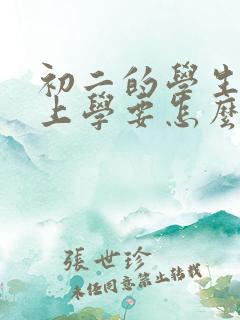 初二的學生
上學要怎麼
張世珍
未经同意禁止转载